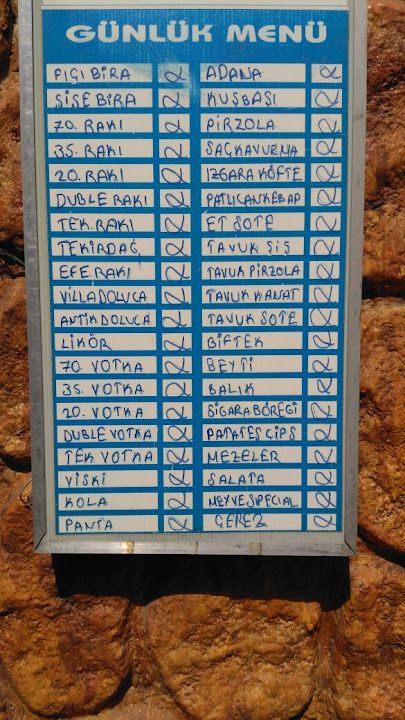 GÜNLÜK MENÜ
FIÇI BİRA α ADANA α
ŞİŞE BİRA α KUŞBAŞI α
70. RAKI α PİRZOLA α
35. RAKI α SAÇKAVURMA α
20. RAKI α IZGARA KÖFTE α
DUBLE RAKI α PATLICAN KEBAP α
TEK. RAKI α ET SOTE α
TEKİRDAĞ α TAVUK ŞİŞ α
EFE RAKI α TAVUK PİRZOLA α
VİLLA DOLUCA α TAVUK KANAT α
ANTİK DOLUCA α TAVUK SOTE α
LİKÖR α BİFTEK α
70. VOTKA α BEYTİ α
35. VOTKA α BALIK α
20. VOTKA α SİGARA BÖREĞİ α
DUBLE VOTKA α PATATES CİPS α
TEK VOTKA α MEZELER α
VİSKİ α SALATA α
KOLA α MEYVE SPECIAL α
FANTA α ÇEREZ α